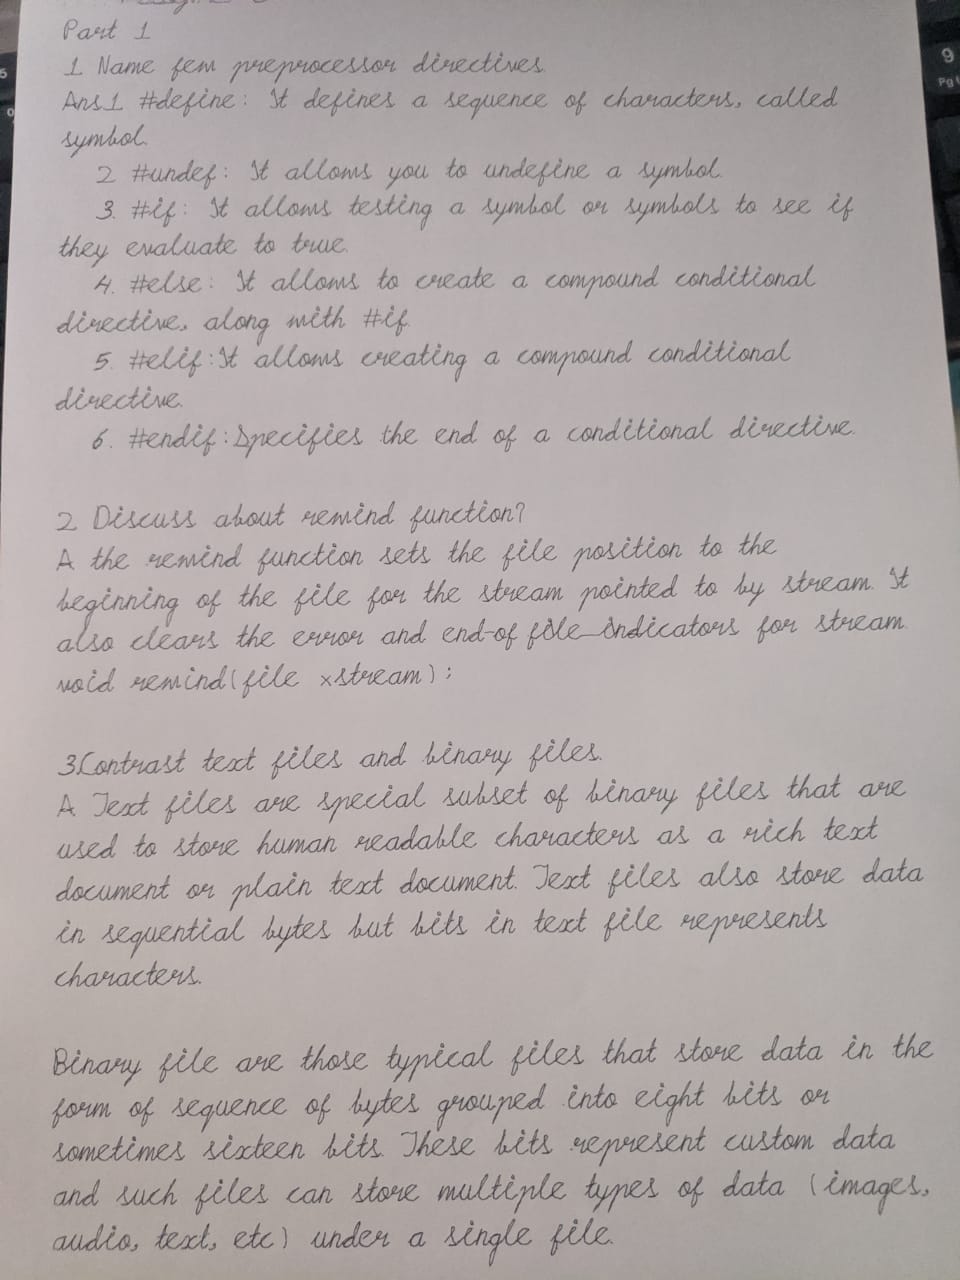 Part 1
1 Name few preprocessor directives.
Ans1 #define: It defines a sequence of characters, called
symbol.
2 #undef: It allows you to undefine a symbol.
3. #if: It allows testing a symbol or symbols to see if
they evaluate to true.
4. #else: It allows to create a compound conditional
directive, along with #if.
5. #elif:It allows creating a compound conditional
directive.
6. #endif:Specifies the end of a conditional directive.
2 Discuss about rewind function?
A the rewind function sets the file position to the
beginning of the file for the stream pointed to by stream. It
also clears the error and end-of file indicators for stream.
void rewind(file *stream);
3.Contrast text files and binary files.
A Text files are special subset of binary files that are
used to store human readable characters as a rich text
document or plain text document. Text files also store data
in sequential bytes but bits in text file represents
characters.
Binary file are those typical files that store data in the
form of sequence of bytes grouped into eight bits or
sometimes sixteen bits. These bits represent custom data
and such files can store multiple types of data (images,
audio, text, etc) under a single file.
9
Pg
5